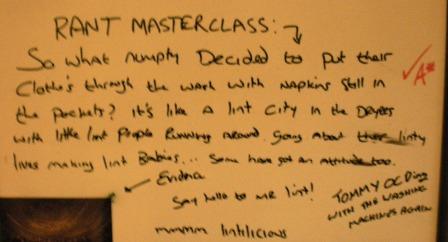 RANT MASTERCLASS:
So what numpty Decided to put their
Clothe's through the wash with napkins still in
the pockets? it's like a lint city in the Dryers
with little lint people running around going about their linty
lives making lint Babies... Some have got an attitude too.
A*
Evidna
Say hello to MR lint!
mmmm lintilicious
TOMMY OCD ing
WITH THE WASHING
MACHINES AGAIN